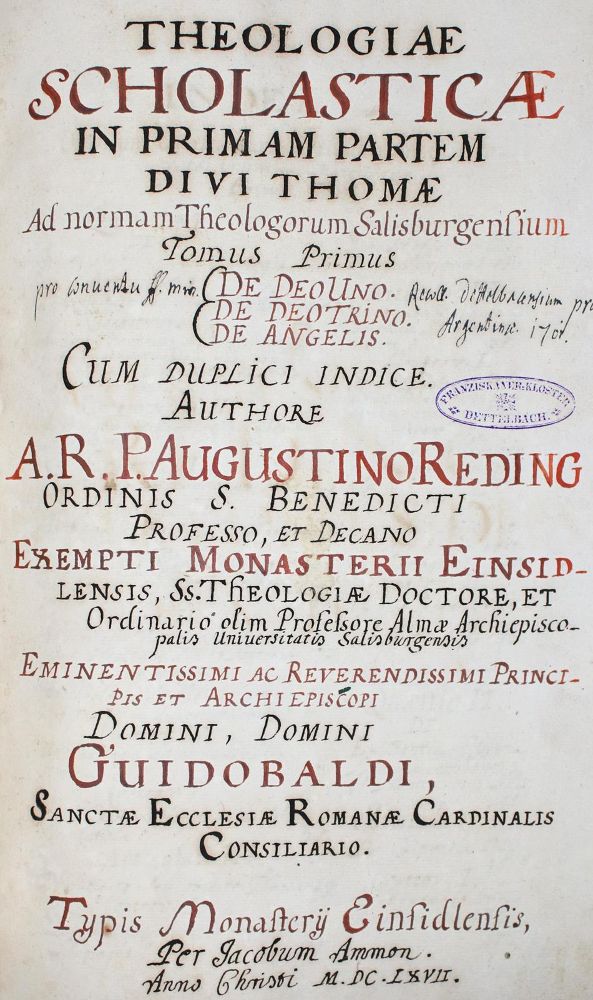 THEOLOGIAE
SCHOLASTICÆ
IN PRIMAM PARTEM
DIVI THOMÆ
Ad normam Theologorum Salisburgensium
Tomus Primus
pro conventu ff. min.
DE DEO UNO.
DE DEO TRINO.
DE ANGELIS.
Recoll. Dettelbacensium pro
Argentinæ 1701.
CUM DUPLICI INDICE.
AUTHORE
FRANZISKANER-KLOSTER
DETTELBACH.
A. R. P. AUGUSTINO REDING
ORDINIS S. BENEDICTI
PROFESSO, ET DECANO
EXEMPTI MONASTERII EINSID-
LENSIS, SS. THEOLOGIÆ DOCTORE, ET
Ordinario olim Professore Almæ Archiepisco-
palis Universitatis Salisburgensis
EMINENTISSIMI AC REVERENDISSIMI PRINCI-
PIS ET ARCHIEPISCOPI
DOMINI, DOMINI
GUIDOBALDI,
SANCTÆ ECCLESIÆ ROMANÆ CARDINALIS
CONSILIARIO.
Typis Monasterij Einsidlensis,
Per Jacobum Ammon.
Anno Christi M. DC. LXVII.